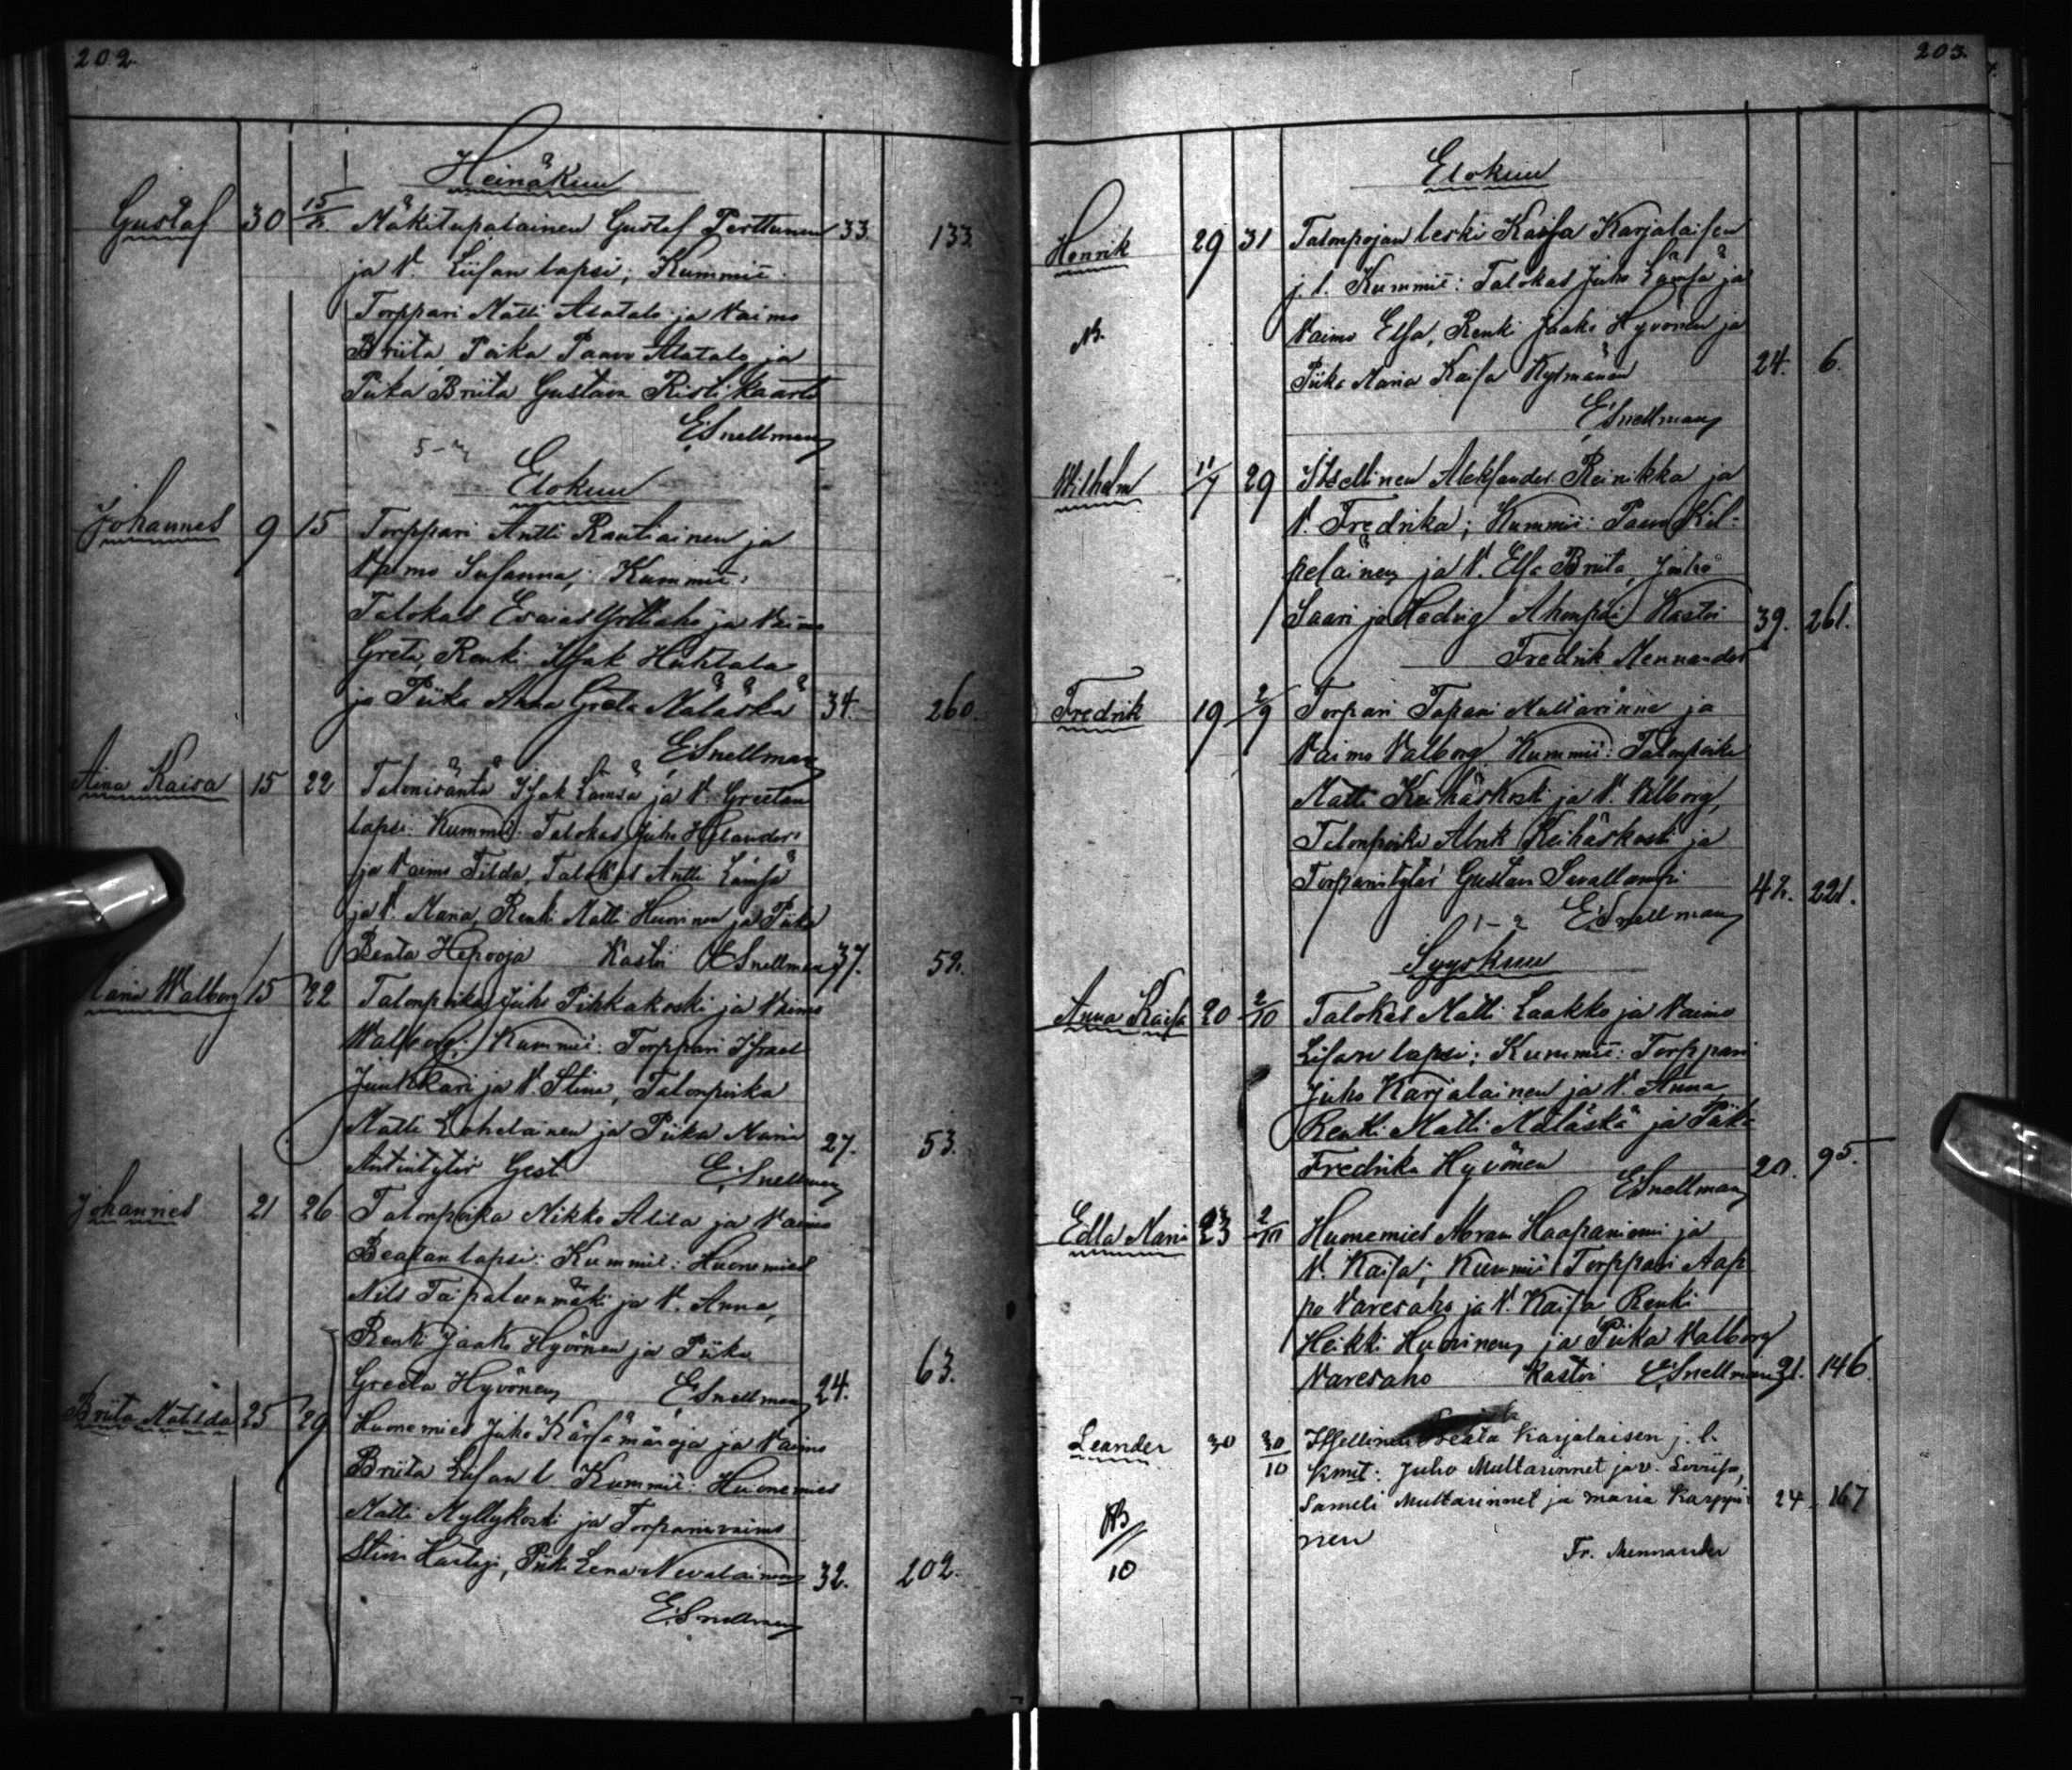 202.
Heinäkuu
Gustaf 30 15/8. Mäkitupalainen Gustaf Perttunen 33. 133.
ja V. Liisan lapsi; Kummit:
Torppari Matti Alatalo ja Vaimo
Briita, Poika Paavo Alatalo ja
Piika Briita Gustava Ristikaarto
E. Snellman
5 –
Elokuu
Johannes 9 15 Torppari Antti Rautiainen ja
Vaimo Susanna; Kummit:
Talokas Esaias Yrttiaho ja Vaimo
Greta, Renki Isak Huhtala
ja Piika Anna Greta Määttä 34. 260.
E. Snellman
Aina Kaisa 15 22 Talonisäntä Isak Lämsä ja V. Greetan
lapsi. Kummit: Talokas Juho Helander
ja Vaimo Tilda, Talokas Antti Lämsä
ja V. Maria, Renki Matti Huovinen ja Piika
Beata Hepooja Kastoi E Snellman 37. 59.
Maria Walborg 15 22 Talonpoika Juho Pihkakoski ja Vaimo
Walborg; Kummit: Torppari Israel
Junkkari ja V. Stina, Talonpoika
Matti Kohelainen ja Piika Maria 27. 53.
Antintytär Gest E. Snellman
Johannes 21 26 Talonpoika Mikko Alila ja Vaimo
Beatan lapsi: Kummit: Huonemies
Nils Taipaleenmäki ja V. Anna,
Renki Jaako Hyvönen ja Piika 63.
Greeta Hyvönen E. Snellman 24.
Briita Matilda 25 29 Huonemies Juho Kärsämäoja ja Vaimo
Briita Liisan l Kummit: Huonemies
Matti Myllykoski ja Torparinvaimo
Stina Hautaj, Piika Lena Nevalainen 32. 202.
E. Snellman
203.
Elokuu
Henrik 29 31 Talonpojan leski Kaisa Karjalaisen
j. l. Kummit: Talokas Juho Lämsä ja
Vaimo Elsa, Renki Jaako Hyvönen ja
Piika Maria Kaisa Kylmänen 24. 6.
E. Snellman
Wilhelm 11/7 29 Itsellinen Aleksander Reinikka ja
V. Fredrika; Kummit: Paavo Kil-
peläinen ja V. Elsa Briita, Juho
Saari ja Hedvig Ahonpää Kastoi 39. 261.
Fredrik Mennander
Fredrik 19 2/9 Torpari Tapani Multarinne ja
Vaimo Valborg. Kummit: Talonpoika
Matti Keihäskoski ja V. Valborg,
Talonpoika Abrk Keihäskoski ja
Torparintytär Gustava Savallampi 48. 221.
1 – 2 E. Snellman
Syyskuu
Anna Kaisa 20 2/10 Talokas Matti Laakko ja Vaimo
Liisan lapsi; Kummit: Torppari
Juho Karjalainen ja V. Anna
Renki Matti Määttä ja Piika
Fredrika Hyvönen 20. 95.
E. Snellman
Edla Maria 23 2/10 Huonemies Abram Haapaniemi ja
V. Kaisa; Kummit Torppari Aap
po Varesaho ja V. Kaisa Renki
Heikki Huovinen ja Piika Valborg
Varesaho Kastoi E. Snellman 31. 146.
Leander 30 30/10 Itsellinen Beata Karjalaisen j. l.
Kmit: Juho Multarinnet ja v. Loviisa,
Sameli Multarinnet ja Maria Karppi- 24. 167
nen
Fr. Mennander
10